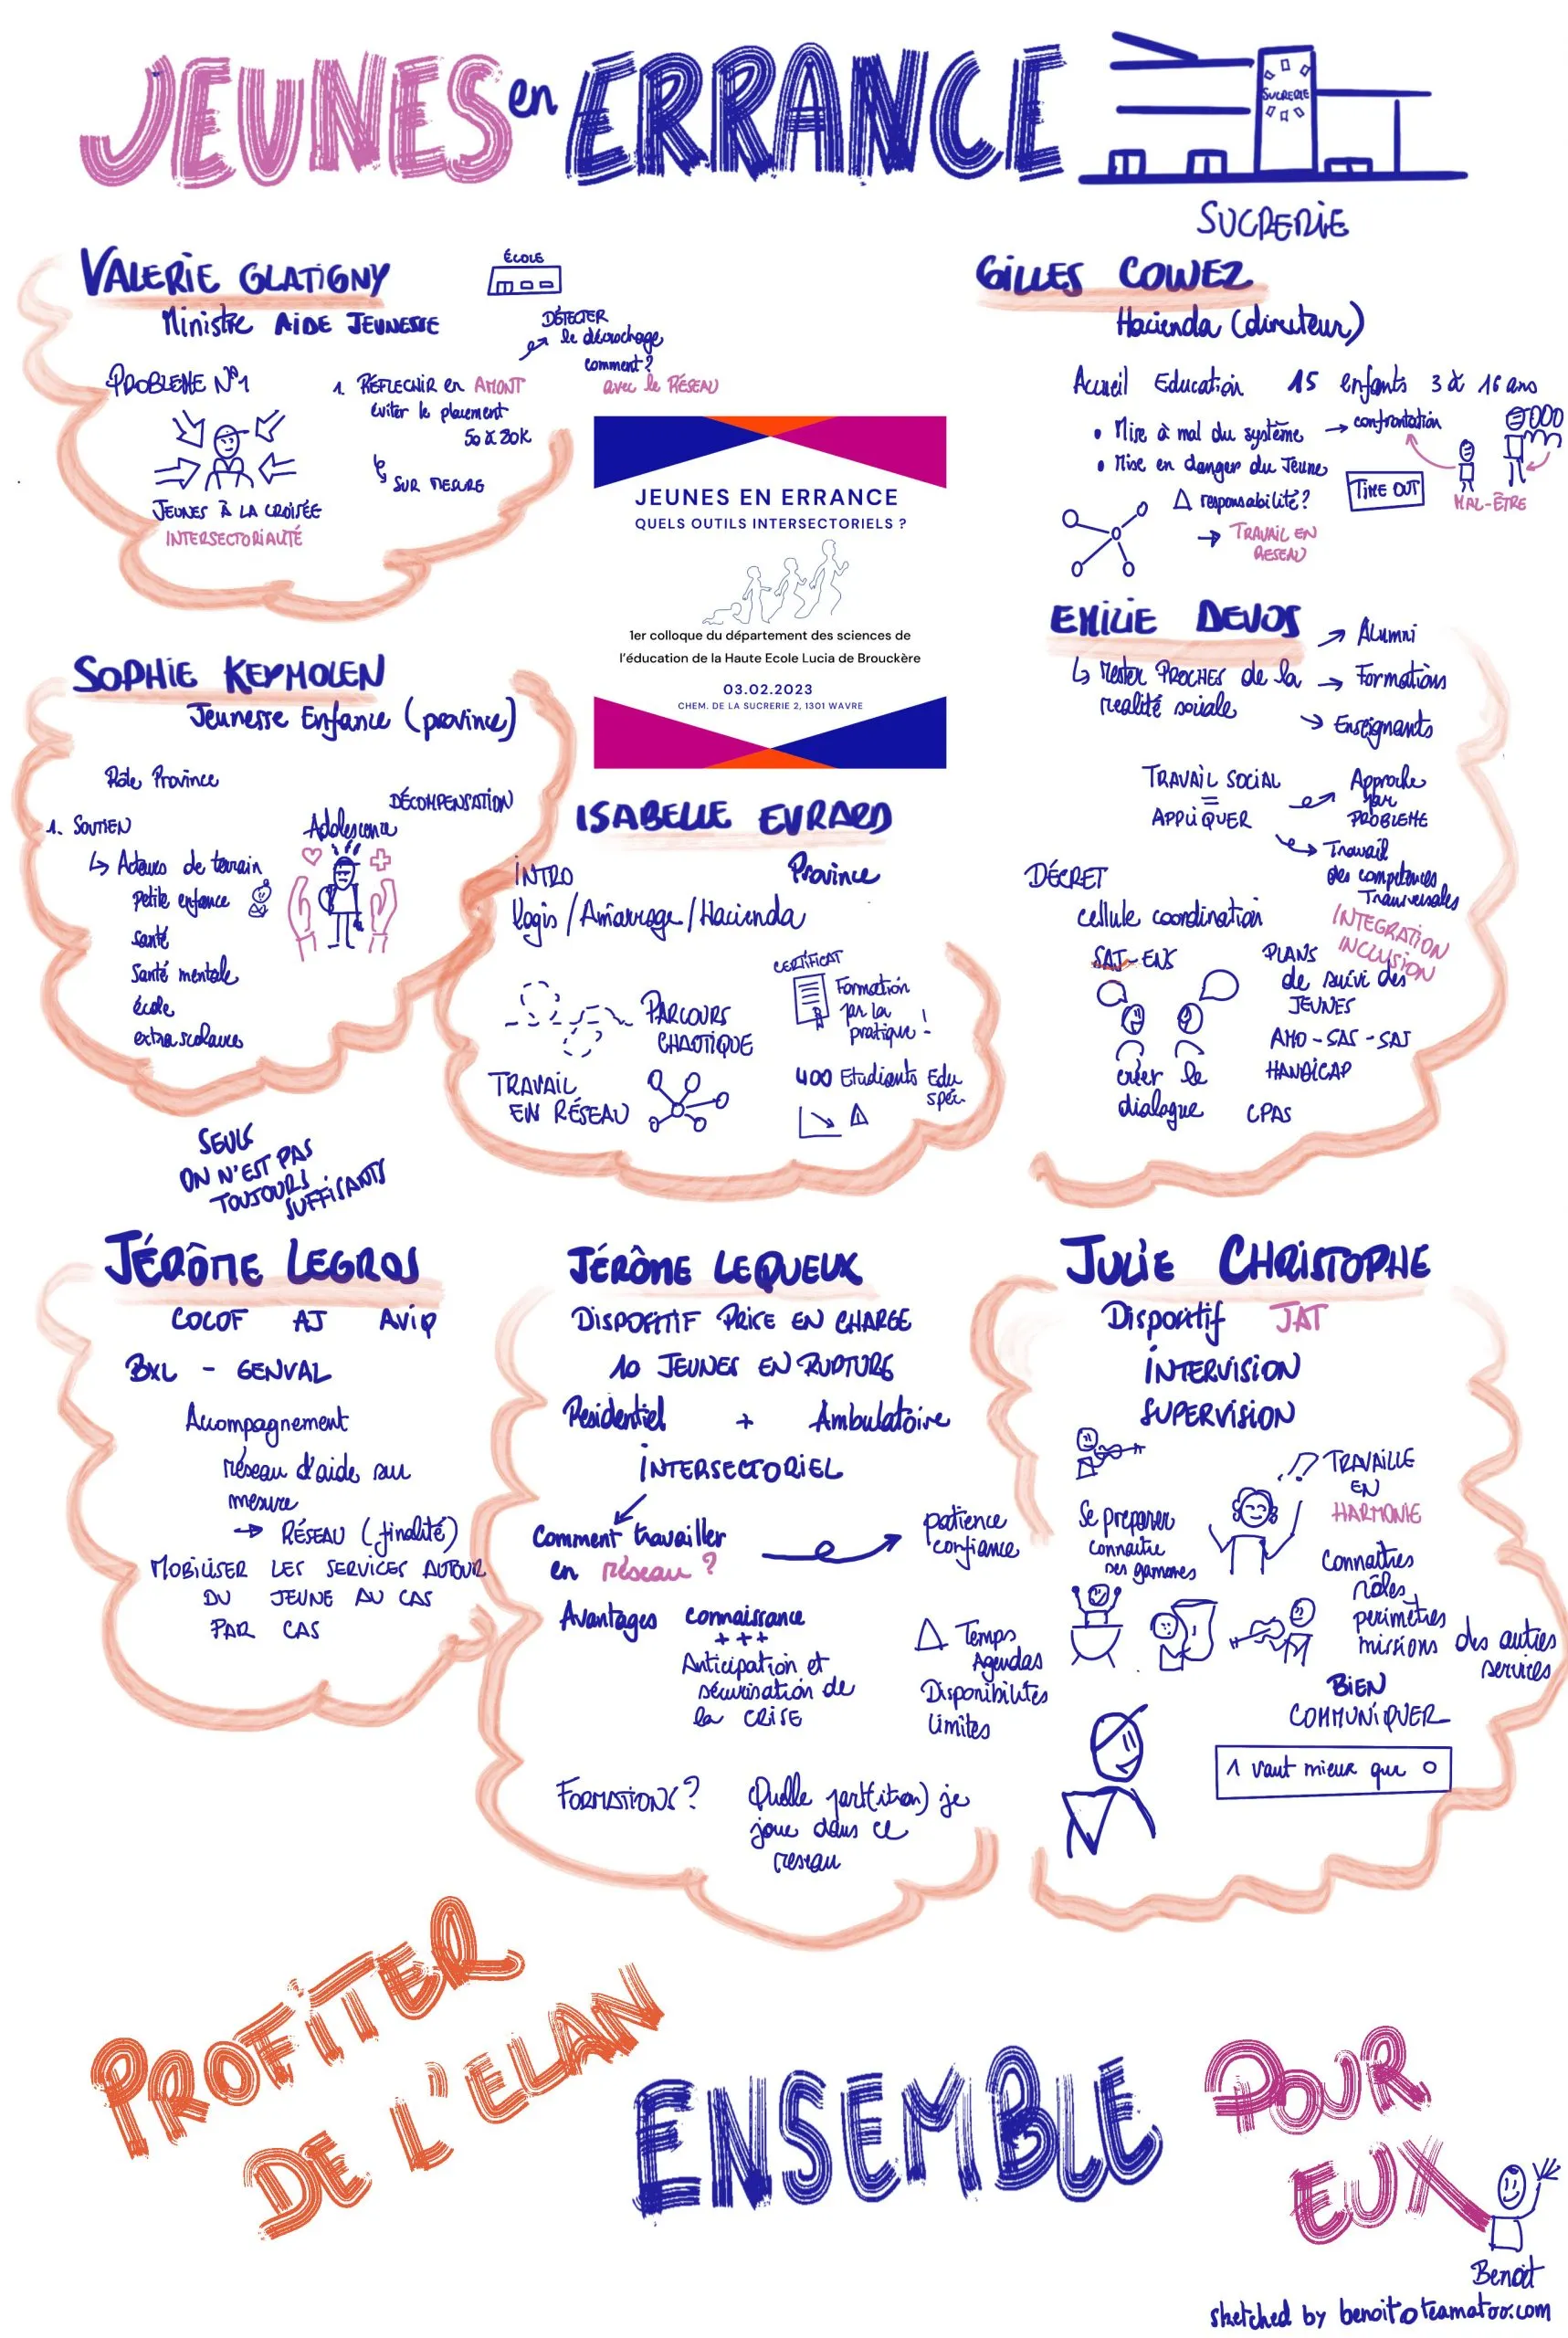 JEUNES en ERRANCE
SUCRERIE
SUCRERIE
VALERIE GLATIGNY
Ministre AIDE JEUNESSE
ÉCOLE
DÉTECTER
le décrochage
comment?
avec le RÉSEAU
PROBLEME N°1
1. RÉFLECHIR en AMONT
éviter le placement
50 à 80K
SUR MESURE
JEUNES À LA CROISÉE
INTERSECTORIALITÉ
GILLES COWEZ
Hacienda (directeur)
Accueil Education 15 enfants 3 à 16 ans
• Mise à mal du système → confrontation
• Mise en danger du Jeune
TIME OUT
MAL-ÊTRE
responsabilité?
→ TRAVAIL EN
RESEAU
JEUNES EN ERRANCE
QUELS OUTILS INTERSECTORIELS ?
1er colloque du département des sciences de
l'éducation de la Haute Ecole Lucia de Brouckère
03.02.2023
CHEM. DE LA SUCRERIE 2, 1301 WAVRE
SOPHIE KEYMOLEN
Jeunesse Enfance (province)
Rôle Province
DÉCOMPENSATION
1. SOUTIEN
Adolescence
↳ Acteurs de terrain
Petite enfance
santé
Santé mentale
école
extra scolaire
EMILIE DEVOS
→ Alumni
↳ rester PROCHES de la
réalité sociale
→ Formations
→ Enseignants
TRAVAIL SOCIAL
=
APPLIQUER
Approche
par
PROBLEME
Travail
des compétences
Transversales
INTEGRATION
INCLUSION
DÉCRET
cellule coordination
SAJ-ENS
PLANS
de suivi des
JEUNES
AMO - SAS - SAJ
HANDICAP
CPAS
créer le
dialogue
ISABELLE EVRARD
INTRO
Province
Logis / Amarrage / Hacienda
PARCOURS
CHAOTIQUE
CERTIFICAT
Formation
par la
pratique !
TRAVAIL
EN RÉSEAU
400 Etudiants Edu
spéc
SEULS
ON N'EST PAS
TOUJOURS
SUFFISANTS
JÉRÔME LEGROS
COCOF AJ AViQ
BXL - GENVAL
Accompagnement
réseau d'aide sur
mesure
→ RÉSEAU (finalité)
MOBILISER LES SERVICES AUTOUR
DU JEUNE AU CAS
PAR CAS
JÉRÔME LEQUEUX
DISPOSITIF PRISE EN CHARGE
10 JEUNES EN RUPTURE
Résidentiel + Ambulatoire
INTERSECTORIEL
Comment travailler
en réseau ?
patience
confiance
Avantages connaissance
+++
Anticipation et
sécurisation de
la CRISE
Temps
Agendas
Disponibilités
Limites
FORMATIONS ?
Quelle part(ition) je
joue dans ce
reseau
JULIE CHRISTOPHE
Dispositif JAT
INTERVISION
SUPERVISION
!? TRAVAILLE
EN
HARMONIE
Se préparer
connaitre
ses gammes
Connaitres
rôles
périmètres
missions des autres
services
BIEN
COMMUNIQUER
1 vaut mieux que 0
PROFITER
DE L'ELAN
ENSEMBLE
POUR
EUX
Benoit
sketched by benoit@teamatoo.com